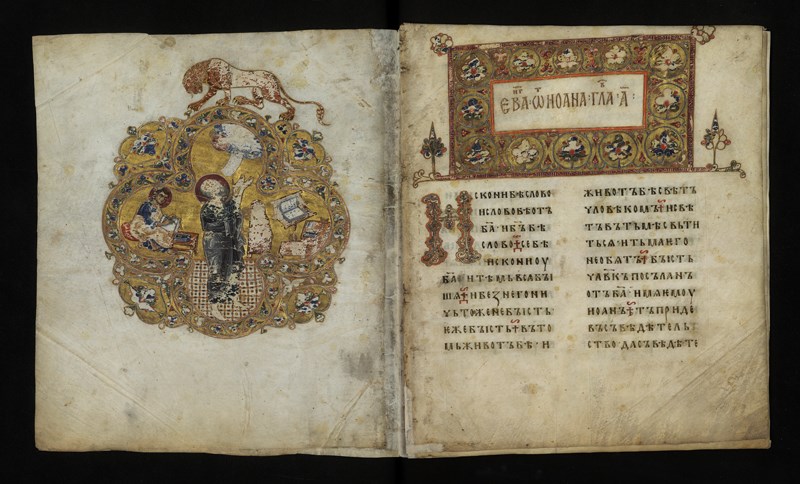 ЕВА҃ Ѿ ИОАНА · ГЛА · А҃ :
ИСКОНИБѢСЛОВО
ИСЛОВОБѢОТЪ
БА҃ · ИБ҃ЪБѢ
СЛОВО СЕБѢ
ИСКОНИОУ
БА҃ · ИТѢМЬВСАБЪІ
ШѦ ИБЕЗНЕГОНИ
ЧЬТОЖЕНЕБЪІСТЬ
ЕЖЕБЪІСТЬ ВЪТО
МЬЖИВОТЪБѢ · И
ЖИВОТЪБѢСВѢТ
ЧЛОВѢКОМЪ ИСВѢ
ТЪВЪТЬМѢСВЬТИ
ТЬСѦ · ИТЬМАѤГО
НЕОБѦТЪ БЪІСТЬ
ЧЛВ҃КЪПОСЪЛАНЪ
ОТЪБА҃ · ИМѦѤМОУ
ИОАНЪ ТЪПРИДЕ
ВЪСЪВѢДѢТЕЛЬ
СТВО ДАСЪВѢДѢТЕ